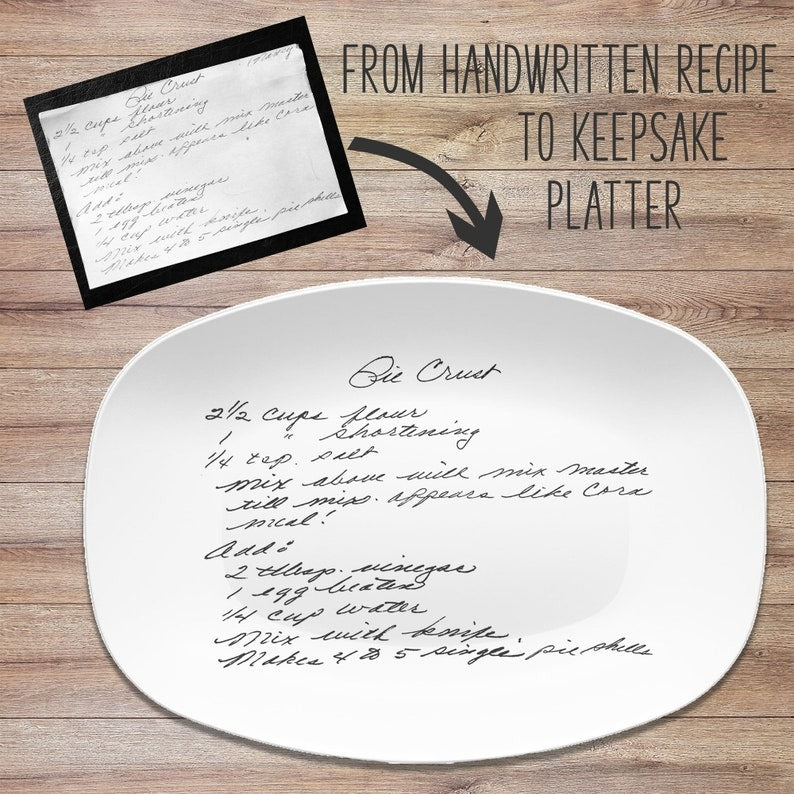 Pie Crust
Nancy
2½ cups flour
1 " shortening
¼ tsp. salt
mix above with mix master
till mix. appears like Corn
meal!
Add:
2 tblsp. vinegar
1 egg beaten
¼ cup water
Mix with knife.
Makes 4 to 5 single pie shells
FROM HANDWRITTEN RECIPE
TO KEEPSAKE
PLATTER
Pie Crust
2½ cups flour
1 " shortening
¼ tsp. salt
mix above with mix master
till mix. appears like Corn
meal!
Add:
2 tblsp. vinegar
1 egg beaten
¼ cup water
Mix with knife.
Makes 4 to 5 single pie shells